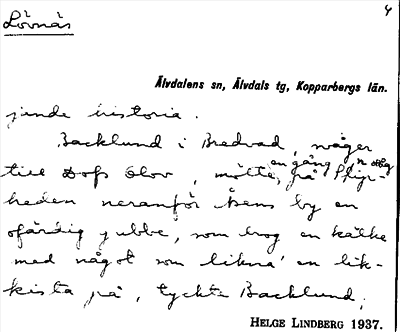 Lövnäs
4
Älvdalens sn, Älvdals tg, Kopparbergs län.
jande historia.
Backlund i Bredvad, måger
en gång
till Dofs Olov, mötte, på Skjär-
heden neranför Åsens by en
ofärdig gubbe, som drog en kälke
med något som likna' en lik-
kista på, tyckte Backlund;
HELGE LINDBERG 1937.